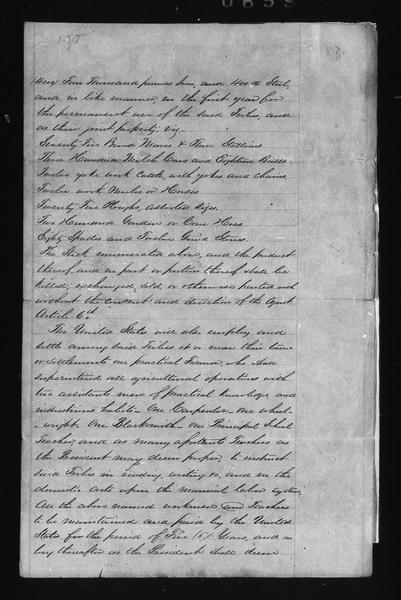 Four Thousand pounds Iron, and 400 lbs Steel,
and in like manner, in the first year for
the permanent use of the said Tribes, and
as their joint property, viz.
Seventy Five Brood Mares & Four Stallions
Three Hundred Milch Cows and Eighteen Bulls
Twelve yoke work Cattle, with yokes and chains,
Twelve work Mules or Horses
Twenty Five Ploughs, assorted sizes.
Two Hundred Garden or Corn Hoes
Eighty Spades and Twelve Grind Stones.
The Stock enumerated above, and the product
thereof and no part or portion thereof shall be
killed, exchanged, sold, or otherwise parted with
without the consent and direction of the Agent.
Article 6th
The United States will also employ and
settle among said Tribes at or near their towns
or settlements one practical Farmer, who shall
superintend all agricultural operations with
two assistants men of practical knowledge and
industrious habits - One Carpenter - one wheel-
-wright - One Blacksmith - one Principal School
Teacher, and as many assistants Teachers as
the President may deem proper, to instruct
said Tribes in reading, writing &c, and in the
domestic arts upon the manual labor system,
All the above named workmen and Teachers
to be maintained and paid by the United
States for the period of Five (5) Years, and as
long thereafter as the President shall deem